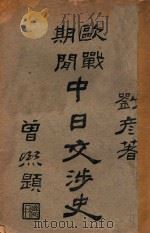 劉彥著
歐戰
期閒
中日交涉史
曾熙題